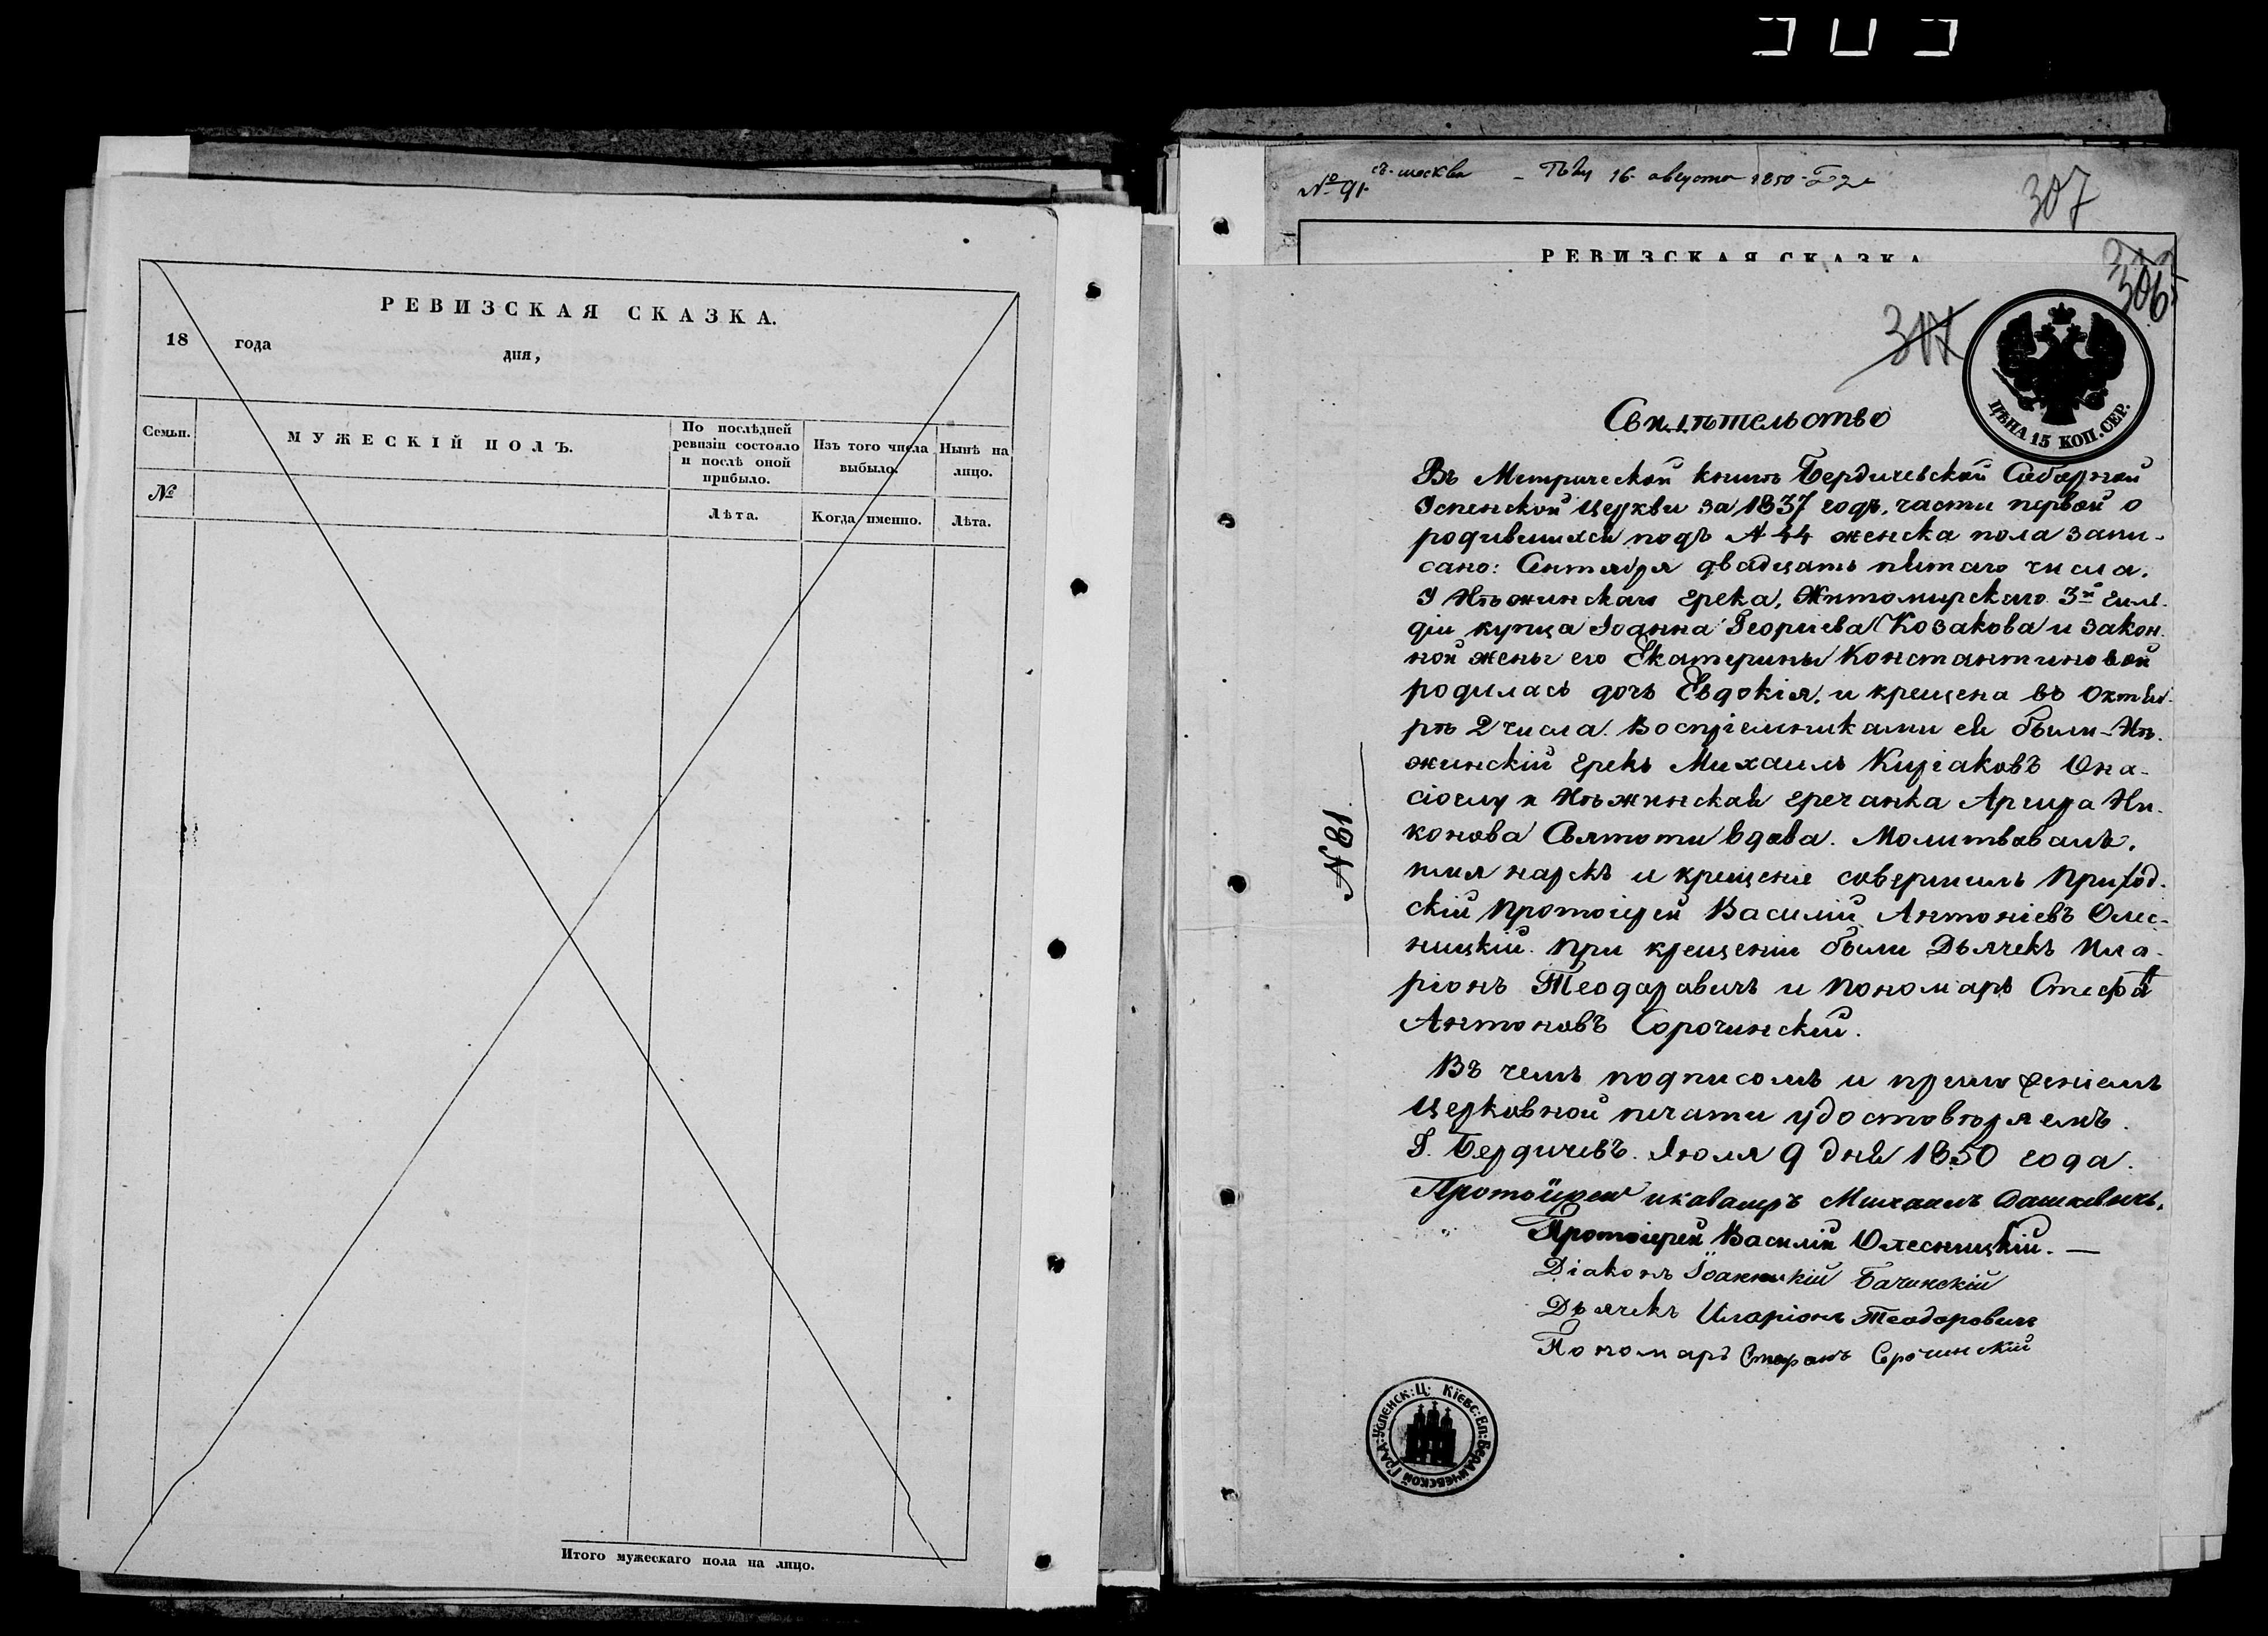 РЕВИЗСКАЯ СКАЗКА.
18 года дня,
Семьи.
МУЖЕСКІЙ ПОЛЪ.
По послѣдней ревизіи состояло и послѣ оной прибыло.
Изъ того числа выбыло.
Нынѣ на лицо.
№
Лѣта.
Когда именно.
Лѣта.
Итого мужескаго пола на лицо.
№ 91
16 августа 1850
307
РЕВИЗСКАЯ СКАЗКА
306
307
ЦѢНА 15 КОП. СЕР.
Свидѣтельство
Въ Метрической книгѣ Бердичевской Соборной
Успенской церкви за 1837 годъ, части первой о
родившихся подъ № 44 женска пола запи-
сано: Сентября двадцать пятаго числа.
У Нѣжинскаго грека, Житомирскаго 3й гиль-
діи купца Іоанна Георгіева Козакова и закон-
ной жены его Екатерины Константиновой
родилась дочь Евдокія, и крещена въ Октяб-
рѣ 2 числа. Воспріемниками ея были Нѣ-
жинскій грекъ Михаилъ Киріаковъ Она-
сіоглу и Нѣжинская гречанка Аргира Ни-
конова Святоти вдова. Молитвовалъ,
имя нарекъ и крещеніе совершилъ Приход-
скій Протоіерей Василій Антоніевъ Олес-
ницкій. При крещеніи были Дьячекъ Ила-
ріонъ Теодоровичъ и Пономарь Стефанъ
Антоновъ Сорочинскій.
Въ чемъ подписомъ и приложеніемъ
церковной печати удостовѣряемъ.
Г. Бердичевъ. Іюля 9 дня 1850 года.
Протоіерей и кавалеръ Михаилъ Дашкевичъ.
Протоіерей Василій Олесницкій. —
Діаконъ Іоанникій Бачинскій
Дьячекъ Иларіонъ Теодоровичъ
Пономарь Стефанъ Сорочинскій
№ 81
Кіевс: Еп: Бердичевской Град: Успенск: Ц: